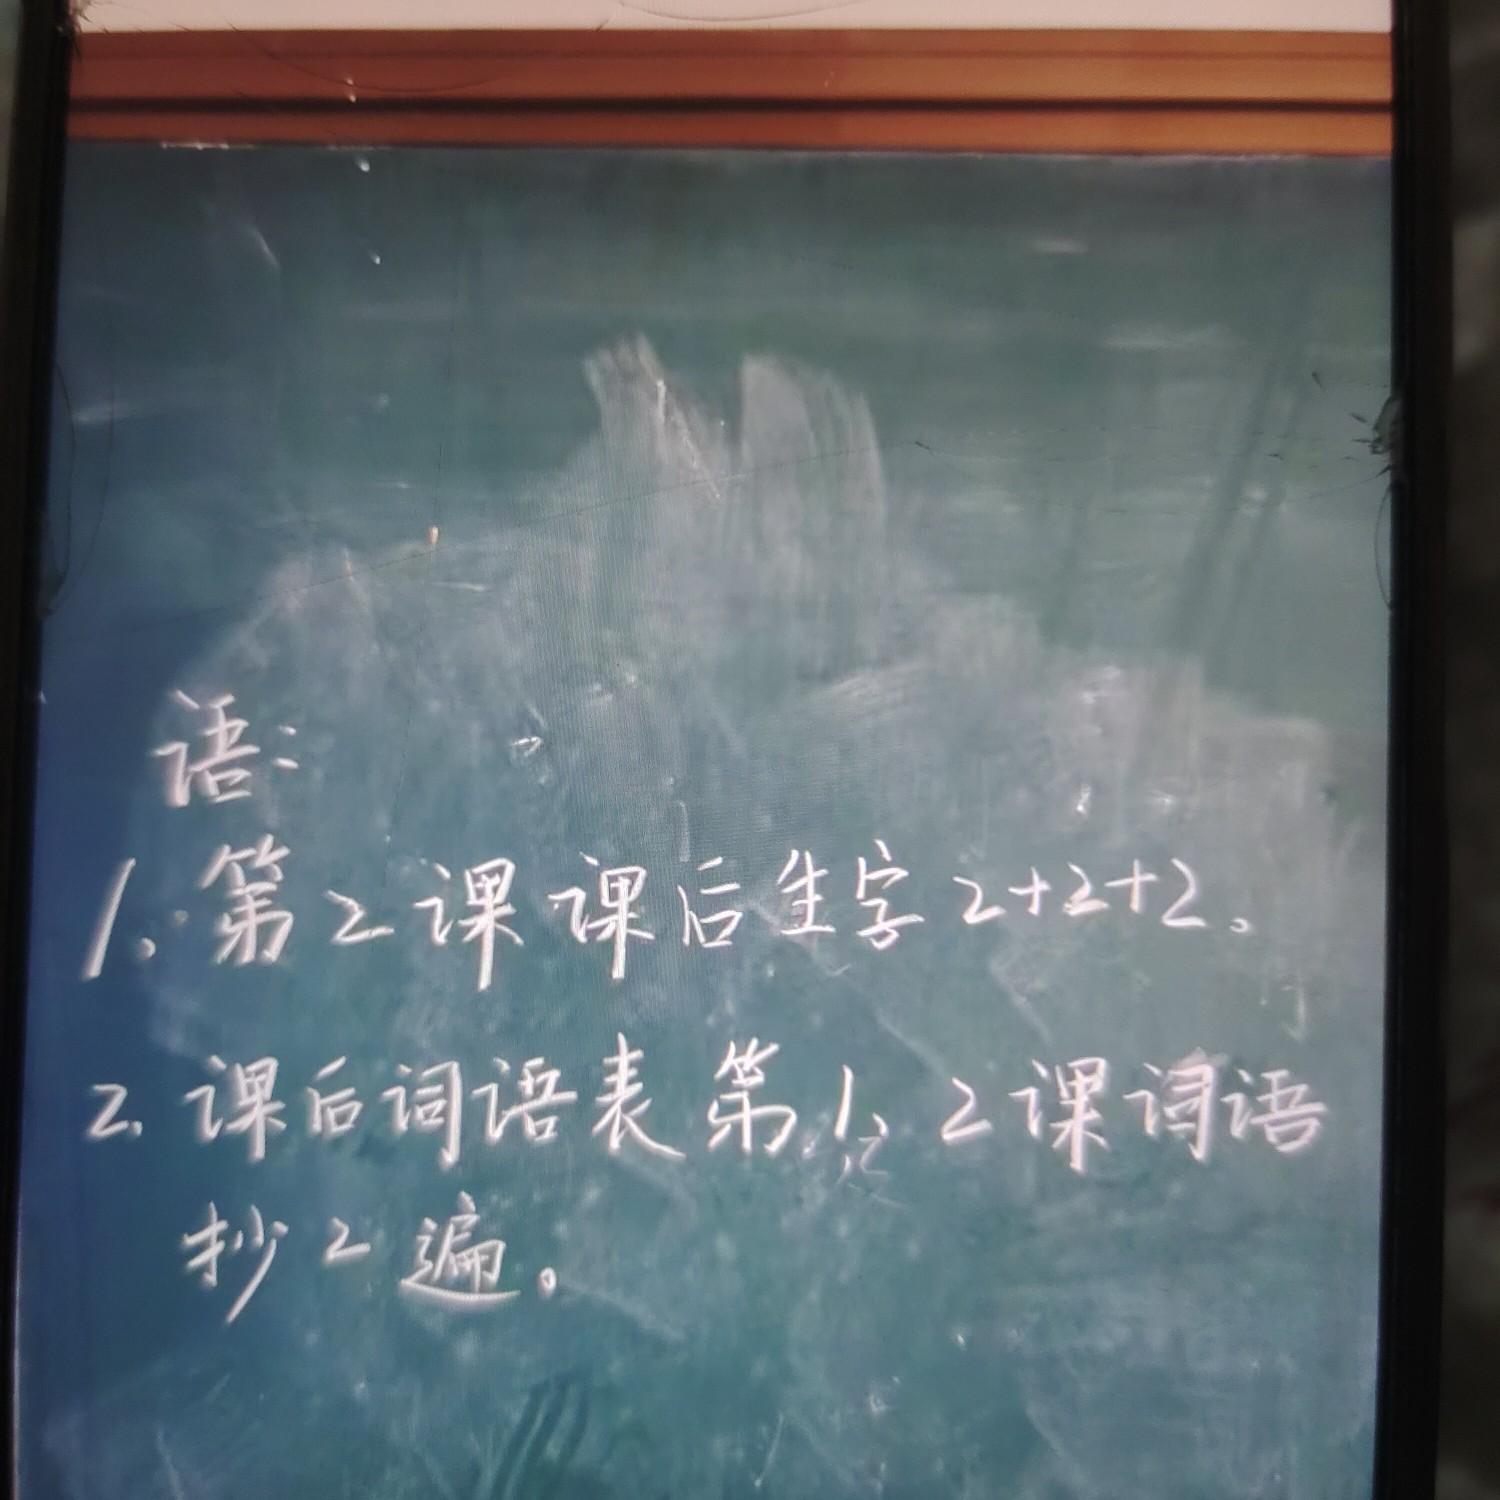 语：
1、第2课课后生字2+2+2。
2、课后词语表第1、2课词语
抄2遍。